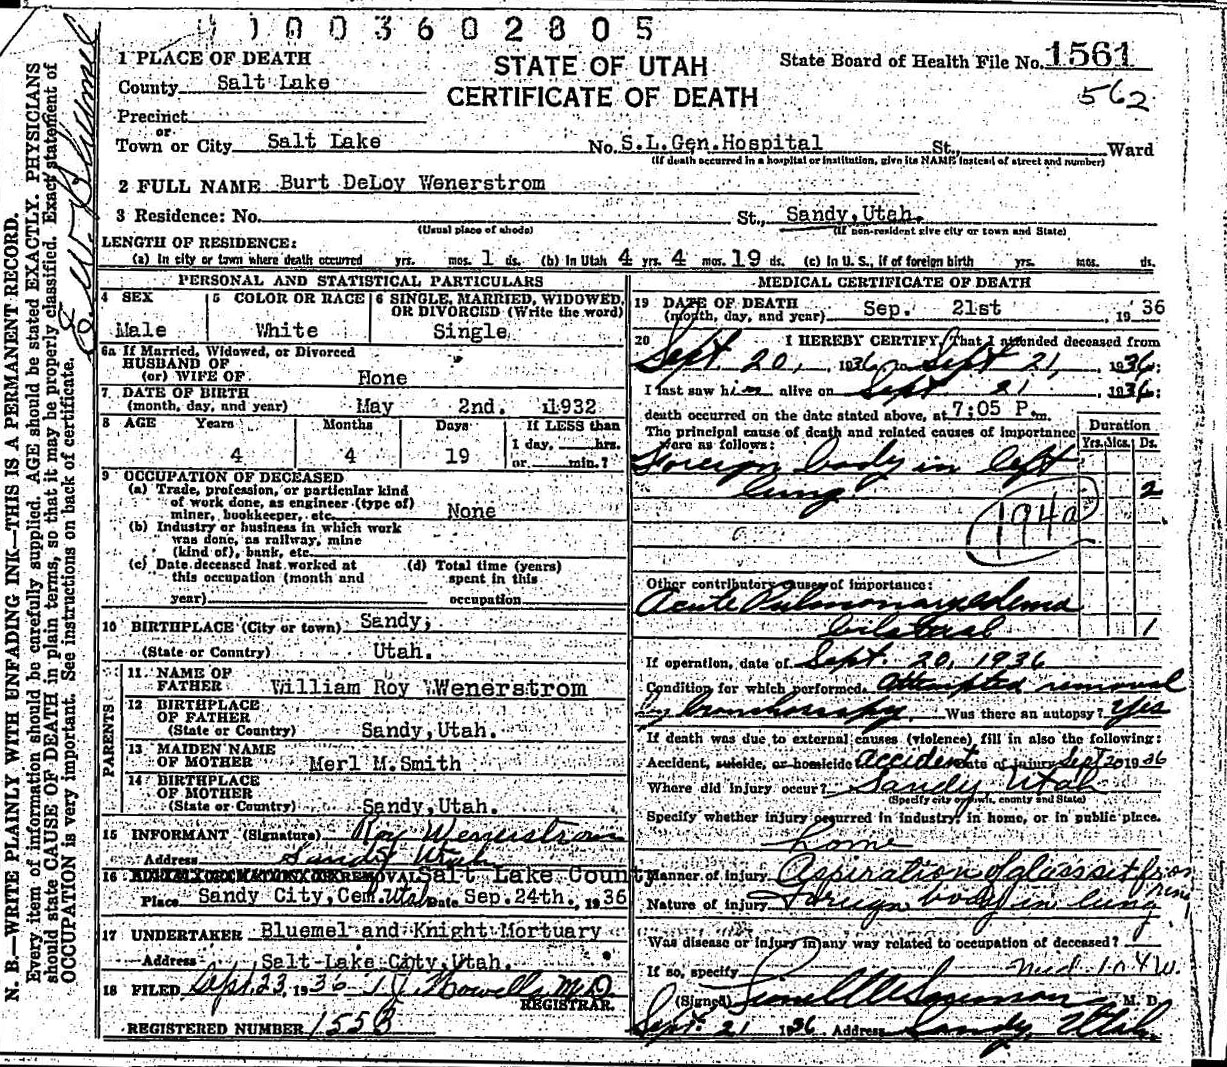 01003602805
1 PLACE OF DEATH
STATE OF UTAH
CERTIFICATE OF DEATH
State Board of Health File No. 1561
562
County Salt Lake
Precinct
or
Town or City Salt Lake No. S.L.Gen.Hospital St., Ward
(If death occurred in a hospital or institution, give its NAME instead of street and number)
2 FULL NAME Burt DeLoy Wenerstrom
3 Residence: No. St., Sandy,Utah.
(Usual place of abode) (If non-resident give city or town and State)
LENGTH OF RESIDENCE:
(a) In city or town where death occurred yrs. mos. 1 ds. (b) In Utah 4 yrs. 4 mos. 19 ds. (c) In U. S., if of foreign birth yrs. mos. ds.
PERSONAL AND STATISTICAL PARTICULARS
4 SEX
Male
5 COLOR OR RACE
White
6 SINGLE, MARRIED, WIDOWED,
OR DIVORCED (Write the word)
Single
6a If Married, Widowed, or Divorced
HUSBAND OF
(or) WIFE OF None
7 DATE OF BIRTH
(month, day, and year) May 2nd. 1932
8 AGE Years Months Days If LESS than
1 day, hrs.
or min.?
4 4 19
9 OCCUPATION OF DECEASED
(a) Trade, profession, or particular kind
of work done, as engineer (type of)
miner, bookkeeper, etc. None
(b) Industry or business in which work
was done, as railway, mine
(kind of), bank, etc.
(c) Date deceased last worked at
this occupation (month and
year)
(d) Total time (years)
spent in this
occupation
10 BIRTHPLACE (City or town) Sandy,
(State or Country) Utah.
PARENTS
11. NAME OF
FATHER William Roy Wenerstrom
12 BIRTHPLACE
OF FATHER
(State or Country) Sandy,Utah.
13 MAIDEN NAME
OF MOTHER Merl M.Smith
14 BIRTHPLACE
OF MOTHER
(State or Country) Sandy,Utah.
15 INFORMANT (Signature) Roy Wenerstrom
Address Sandy Utah
16 BURIAL, CREMATION OR REMOVAL Salt Lake County
Place Sandy City,Cem.Utah Date Sep.24th., 1936
17 UNDERTAKER Bluemel and Knight Mortuary
Address Salt Lake City,Utah.
18 FILED Sept. 23, 1936 Howells M.D.
REGISTRAR.
REGISTERED NUMBER 1558
MEDICAL CERTIFICATE OF DEATH
19 DATE OF DEATH
(month, day, and year) Sep. 21st , 1936
20 I HEREBY CERTIFY, That I attended deceased from
Sept. 20, , 1936 to Sept 21, , 1936;
I last saw him alive on Sept. 21 , 1936;
death occurred on the date stated above, at 7:05 P.m.
The principal cause of death and related causes of importance
were as follows:
Duration
Yrs. Mos. Ds.
Foreign body in left
lung 2
194a
Other contributory causes of importance:
Acute Pulmonary edema
bilateral 1
If operation, date of Sept. 20, 1936
Condition for which performed. Attempted removal
by bronchoscopy. Was there an autopsy? Yes
If death was due to external causes (violence) fill in also the following:
Accident, suicide, or homicide accident Date of injury Sept 20 1936
Where did injury occur? Sandy, Utah
(Specify city or town, county and State)
Specify whether injury occurred in industry, in home, or in public place.
home
Manner of injury Aspiration of glass set from
ring
Nature of injury Foreign body in lung
Was disease or injury in any way related to occupation of deceased?
If so, specify
(Signed) M. D.
Sept. 21 1936 Address Sandy, Utah
N. B.—WRITE PLAINLY WITH UNFADING INK—THIS IS A PERMANENT RECORD.
Every item of information should be carefully supplied. AGE should be stated EXACTLY. PHYSICIANS
should state CAUSE OF DEATH in plain terms, so that it may be properly classified. Exact statement of
OCCUPATION is very important. See instructions on back of certificate.